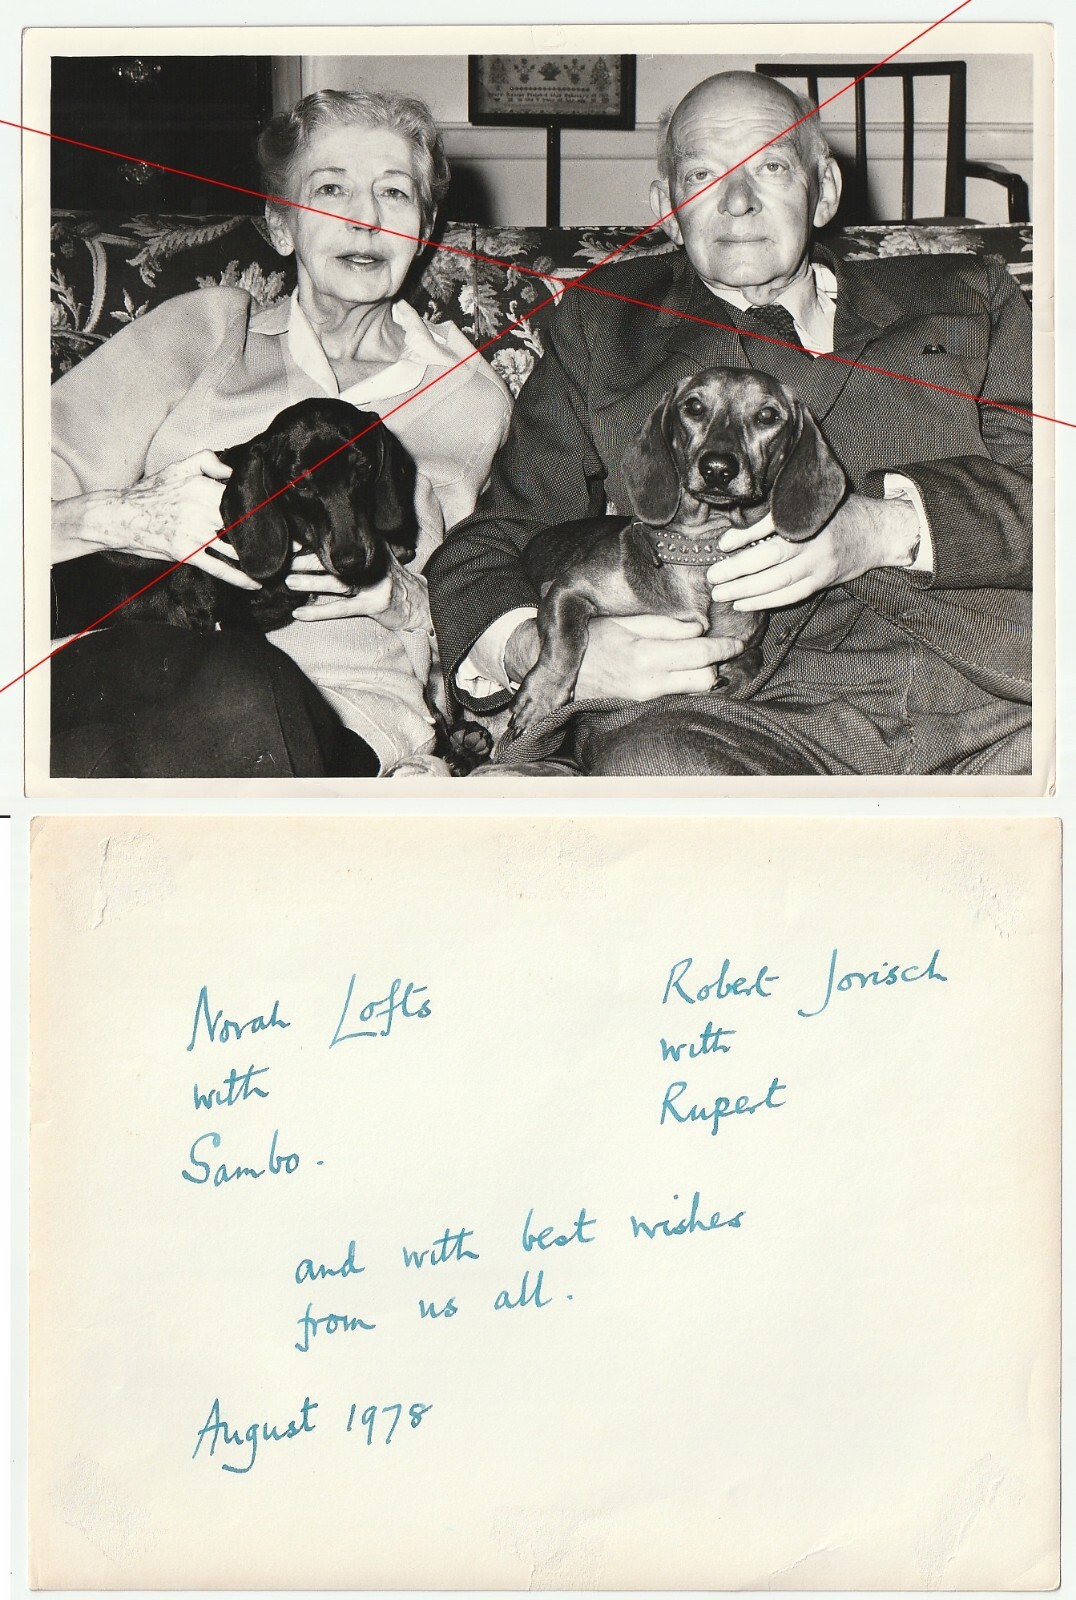 Norah Lofts
with
Sambo.
Robert Jorisch
with
Rupert
and with best wishes
from us all.
August 1978